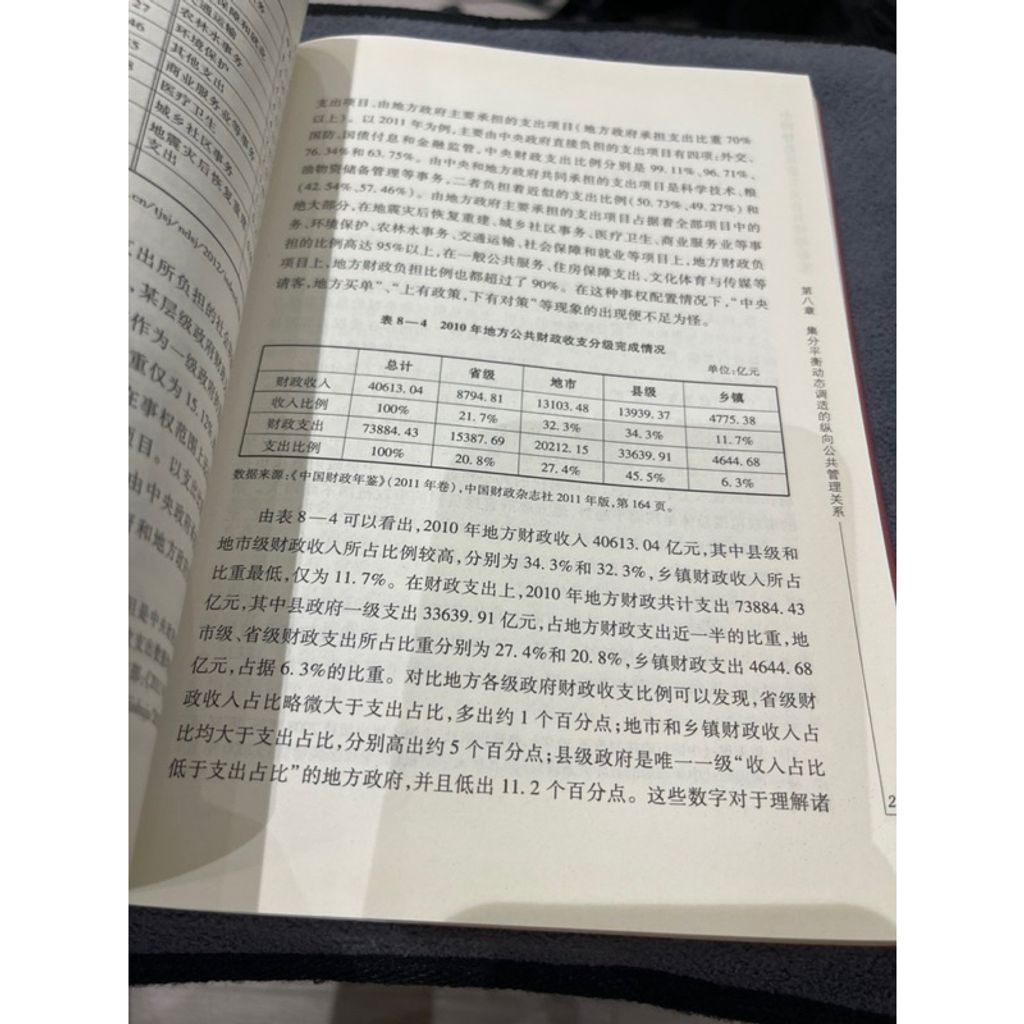 27
46
保障和就业
交通运输
农林水事务
环境保护
其他支出
商业服务业等事务
医疗卫生
城乡社区事务
地震灾后恢复重建
支出
.cn/tjsj/ndsj/2012/
出所负担的社会
某层级政府财
作为一级政府
重仅为 15.12%
在事权范围
项目。以支出
由中央政府
和地方政
支出项目,由地方政府主要承担的支出项目(地方政府承担支出比重 70%
以上)。以 2011 年为例,主要由中央政府直接负担的支出项目有四项:外交、
国防、国债付息和金融监管,中央财政支出比例分别是 99.11%、96.71%、
76.34%和 63.75%。由中央和地方政府共同承担的支出项目是科学技术、粮
油物资储备管理等事务,二者负担着近似的支出比例(50.73%、49.27%)和
(42.54%、57.46%)。由地方政府主要承担的支出项目占据着全部项目中的
绝大部分,在地震灾后恢复重建、城乡社区事务、医疗卫生、商业服务业等事
务、环境保护、农林水事务、交通运输、社会保障和就业等项目上,地方财政负
担的比例高达 95%以上,在一般公共服务、住房保障支出、文化体育与传媒等
项目上,地方财政负担比例也都超过了 90%。在这种事权配置情况下,“中央
请客,地方买单”、“上有政策,下有对策”等现象的出现便不足为怪。
表 8—4 2010 年地方公共财政收支分级完成情况
单位:亿元
总计 省级 地市 县级 乡镇
财政收入 40613.04 8794.81 13103.48 13939.37 4775.38
收入比例 100% 21.7% 32.3% 34.3% 11.7%
财政支出 73884.43 15387.69 20212.15 33639.91 4644.68
支出比例 100% 20.8% 27.4% 45.5% 6.3%
数据来源:《中国财政年鉴》(2011 年卷),中国财政杂志社 2011 年版,第 164 页。
由表 8—4 可以看出,2010 年地方财政收入 40613.04 亿元,其中县级和
地市级财政收入所占比例较高,分别为 34.3%和 32.3%,乡镇财政收入所占
比重最低,仅为 11.7%。在财政支出上,2010 年地方财政共计支出 73884.43
亿元,其中县政府一级支出 33639.91 亿元,占地方财政支出近一半的比重,地
市级、省级财政支出所占比重分别为 27.4%和 20.8%,乡镇财政支出 4644.68
亿元,占据 6.3%的比重。对比地方各级政府财政收支比例可以发现,省级财
政收入占比略微大于支出占比,多出约 1 个百分点;地市和乡镇财政收入占
比均大于支出占比,分别高出约 5 个百分点;县级政府是唯一一级“收入占比
低于支出占比”的地方政府,并且低出 11.2 个百分点。这些数字对于理解诸
第八章 集分平衡动态调适的纵向公共管理关系
2